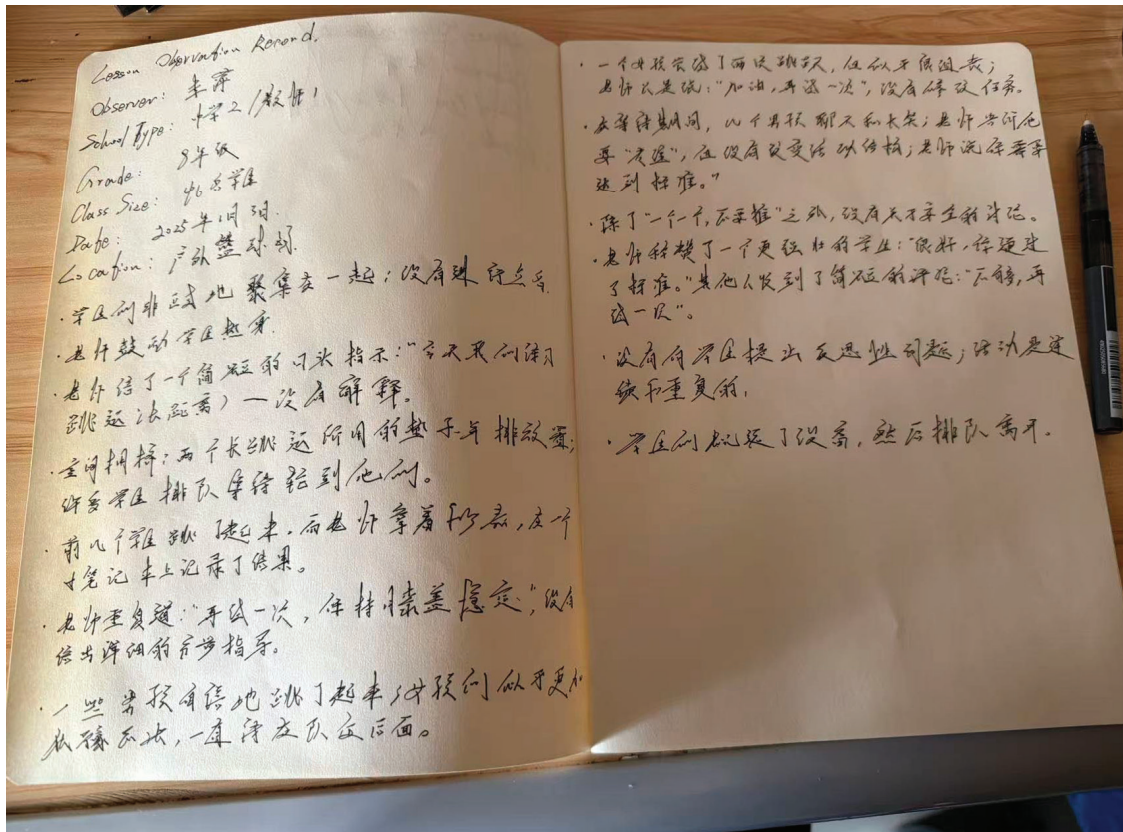 Lesson Observation Record.
Observer: 朱萍
School Type: 中学2/教师1
Grade: 8年级
Class Size: 46名学生
Date: 2025年1月3日.
Location: 户外篮球场
· 学生们非正式地聚集在一起；没有进行点名
· 老师鼓动学生热身.
· 老师给了一个简短的口头指示：“今天我们练习
跳远（长距离）— 没有解释。
· 空间拥挤：两个长跳远所用的垫子 排放置；
许多学生排队等待轮到他们。
· 前几个学生跳了起来，而老师拿着秒表，在一个
小笔记本上记录了结果。
· 老师重复道：“再试一次，保持膝盖稳定”，没有
给出详细的 步指导。
· 一些男孩自信地跳了起来；女孩们似乎更加
犹豫不决，一直待在队文后面。
· 一个女孩尝试了两次跳 ，但似乎很沮丧；
老师只是说：“加油，再试一次”，没有修改任务。
· 在等待期间，几个男孩聊天和大笑；老师告诉他
要“ ”，但没有改变活动结构；老师说你要等
达到标准。”
· 除了“一个一个，不要推”之外，没有关于安全的讨论。
· 老师称赞了一个更强壮的学生：“很好，你超过
了标准。”其他人收到了简短的评论：“不够，再
试一次”。
· 没有向学生提出反思性问题；活动是连
续和重复的，
· 学生们 了设备，然后排队离开.